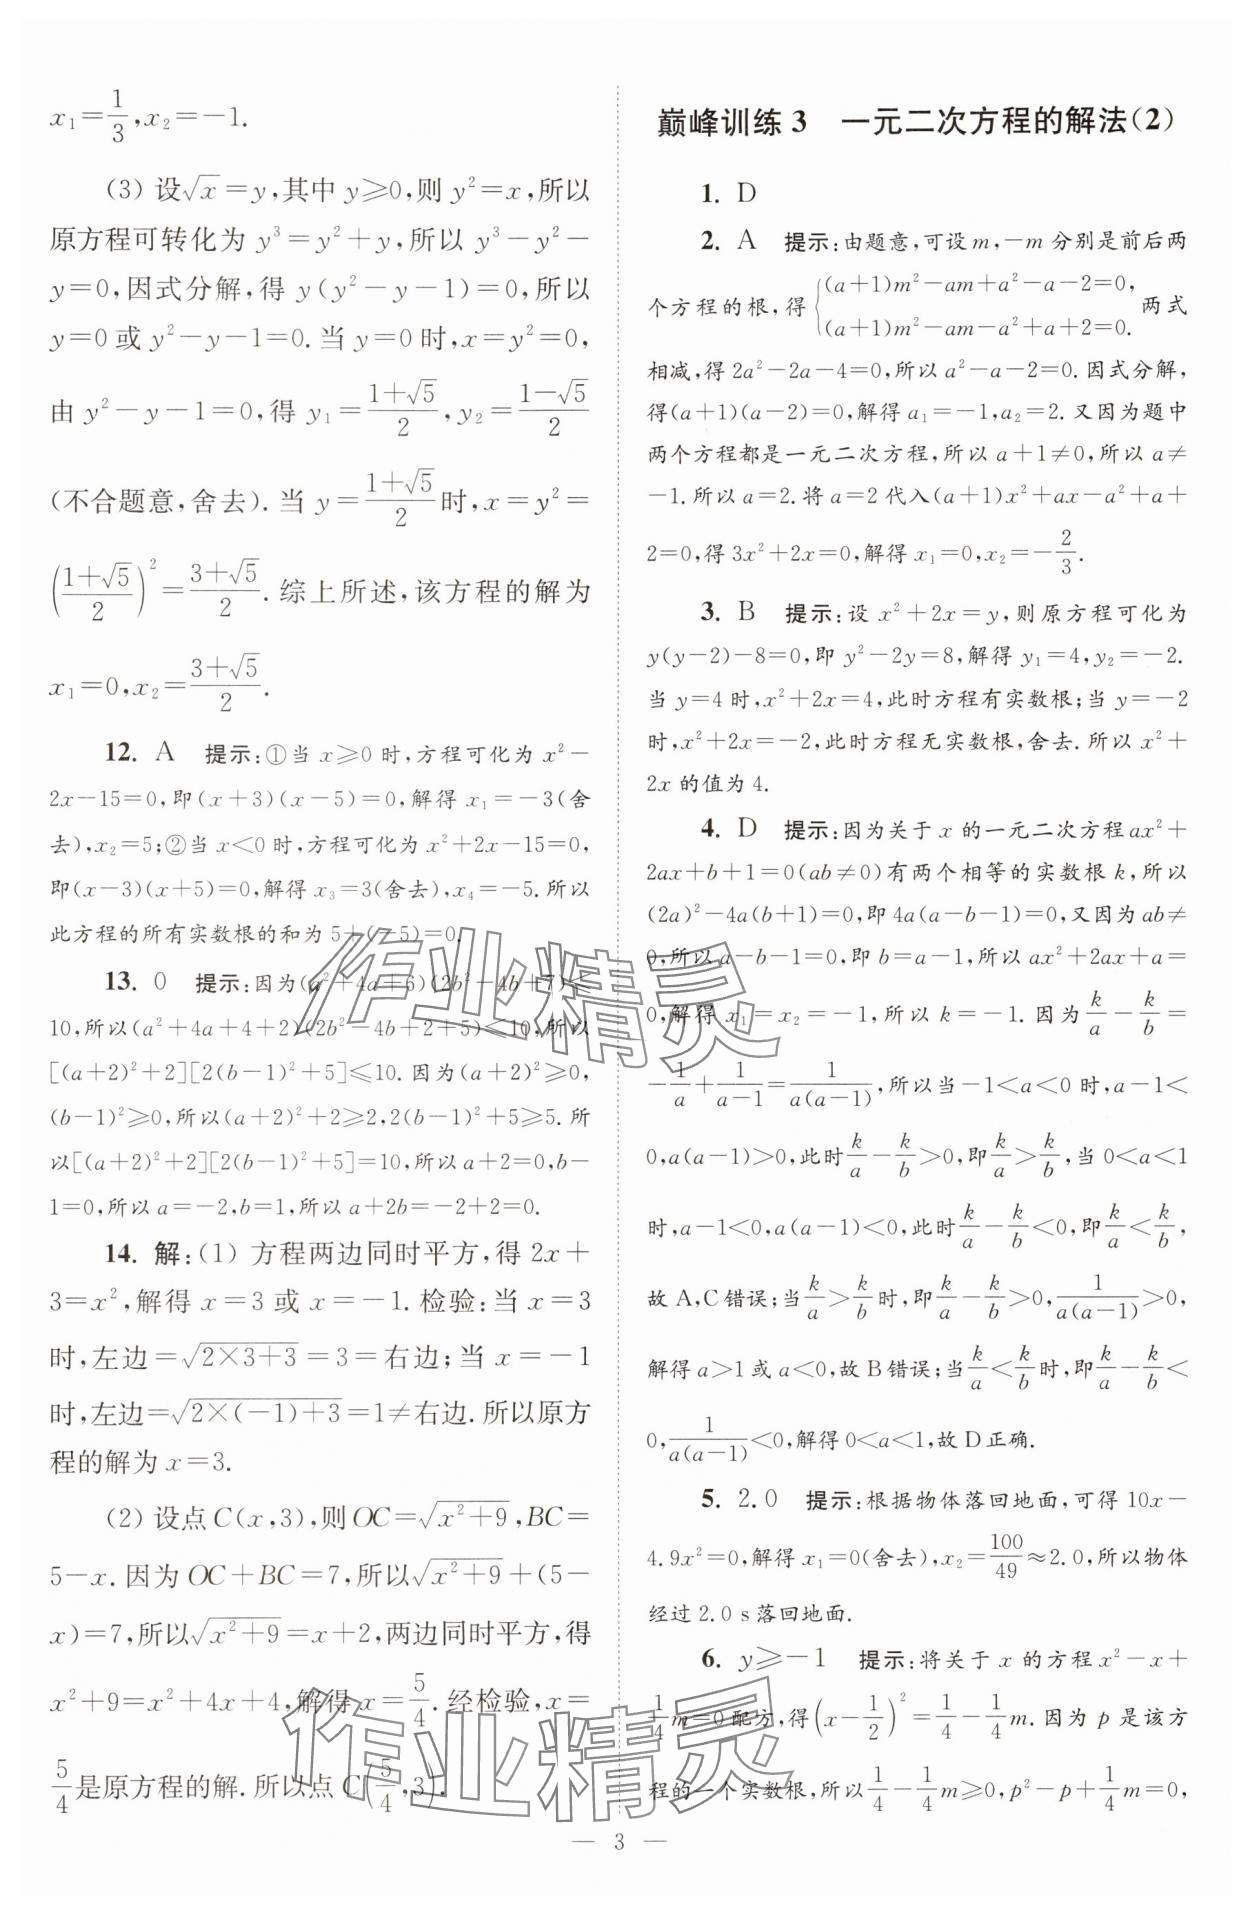 x₁=1/3,x₂=−1.
(3) 设√x=y,其中 y≥0,则 y²=x,所以
原方程可转化为 y³=y²+y,所以 y³−y²−
y=0,因式分解,得 y(y²−y−1)=0,所以
y=0 或 y²−y−1=0. 当 y=0 时,x=y²=0,
由 y²−y−1=0,得 y₁=(1+√5)/2,y₂=(1−√5)/2
(不合题意,舍去). 当 y=(1+√5)/2时,x=y²=
((1+√5)/2)²=(3+√5)/2. 综上所述,该方程的解为
x₁=0,x₂=(3+√5)/2.
12. A 提示:①当 x≥0 时,方程可化为 x²−
2x−15=0,即(x+3)(x−5)=0,解得 x₁=−3(舍
去),x₂=5;②当 x<0 时,方程可化为 x²+2x−15=0,
即(x−3)(x+5)=0,解得 x₃=3(舍去),x₄=−5. 所以
此方程的所有实数根的和为 5+(−5)=0.
13. 0 提示:因为(a²+4a+6)(2b²−4b+7)≤
10,所以(a²+4a+4+2)(2b²−4b+2+5)≤10,所以
[(a+2)²+2][2(b−1)²+5]≤10. 因为(a+2)²≥0,
(b−1)²≥0,所以(a+2)²+2≥2,2(b−1)²+5≥5. 所
以[(a+2)²+2][2(b−1)²+5]=10,所以 a+2=0,b−
1=0,所以 a=−2,b=1,所以 a+2b=−2+2=0.
14. 解:(1) 方程两边同时平方,得 2x+
3=x²,解得 x=3 或 x=−1. 检验:当 x=3
时,左边=√(2×3+3)=3=右边;当 x=−1
时,左边=√(2×(−1)+3)=1≠右边. 所以原方
程的解为 x=3.
(2) 设点 C(x,3),则 OC=√(x²+9),BC=
5−x. 因为 OC+BC=7,所以√(x²+9)+(5−
x)=7,所以√(x²+9)=x+2,两边同时平方,得
x²+9=x²+4x+4,解得 x=5/4. 经检验,x=
5/4是原方程的解. 所以点 C(5/4,3).
巅峰训练 3 一元二次方程的解法(2)
1. D
2. A 提示:由题意,可设 m,−m 分别是前后两
个方程的根,得{(a+1)m²−am+a²−a−2=0,(a+1)m²−am−a²+a+2=0. 两式
相减,得 2a²−2a−4=0,所以 a²−a−2=0. 因式分解,
得(a+1)(a−2)=0,解得 a₁=−1,a₂=2. 又因为题中
两个方程都是一元二次方程,所以 a+1≠0,所以 a≠
−1. 所以 a=2. 将 a=2 代入(a+1)x²+ax−a²+a+
2=0,得 3x²+2x=0,解得 x₁=0,x₂=−2/3.
3. B 提示:设 x²+2x=y,则原方程可化为
y(y−2)−8=0,即 y²−2y=8,解得 y₁=4,y₂=−2.
当 y=4 时,x²+2x=4,此时方程有实数根;当 y=−2
时,x²+2x=−2,此时方程无实数根,舍去. 所以 x²+
2x 的值为 4.
4. D 提示:因为关于 x 的一元二次方程 ax²+
2ax+b+1=0(ab≠0)有两个相等的实数根 k,所以
(2a)²−4a(b+1)=0,即 4a(a−b−1)=0,又因为 ab≠
0,所以 a−b−1=0,即 b=a−1,所以 ax²+2ax+a=
0,解得 x₁=x₂=−1,所以 k=−1. 因为k/a−k/b=
−1/a+1/(a−1)=1/(a(a−1)),所以当−1<a<0 时,a−1<
0,a(a−1)>0,此时k/a−k/b>0,即k/a>k/b,当 0<a<1
时,a−1<0,a(a−1)<0,此时k/a−k/b<0,即k/a<k/b,
故 A,C 错误;当k/a>k/b时,即k/a−k/b>0,1/(a(a−1))>0,
解得 a>1 或 a<0,故 B 错误;当k/a<k/b时,即k/a−k/b<
0,1/(a(a−1))<0,解得 0<a<1,故 D 正确.
5. 2.0 提示:根据物体落回地面,可得 10x−
4.9x²=0,解得 x₁=0(舍去),x₂=100/49≈2.0,所以物体
经过 2.0 s 落回地面.
6. y≥−1 提示:将关于 x 的方程 x²−x+
1/4m=0 配方,得(x−1/2)²=1/4−1/4m. 因为 p 是该方
程的一个实数根,所以1/4−1/4m≥0,p²−p+1/4m=0,
— 3 —
作业精灵
作业精灵